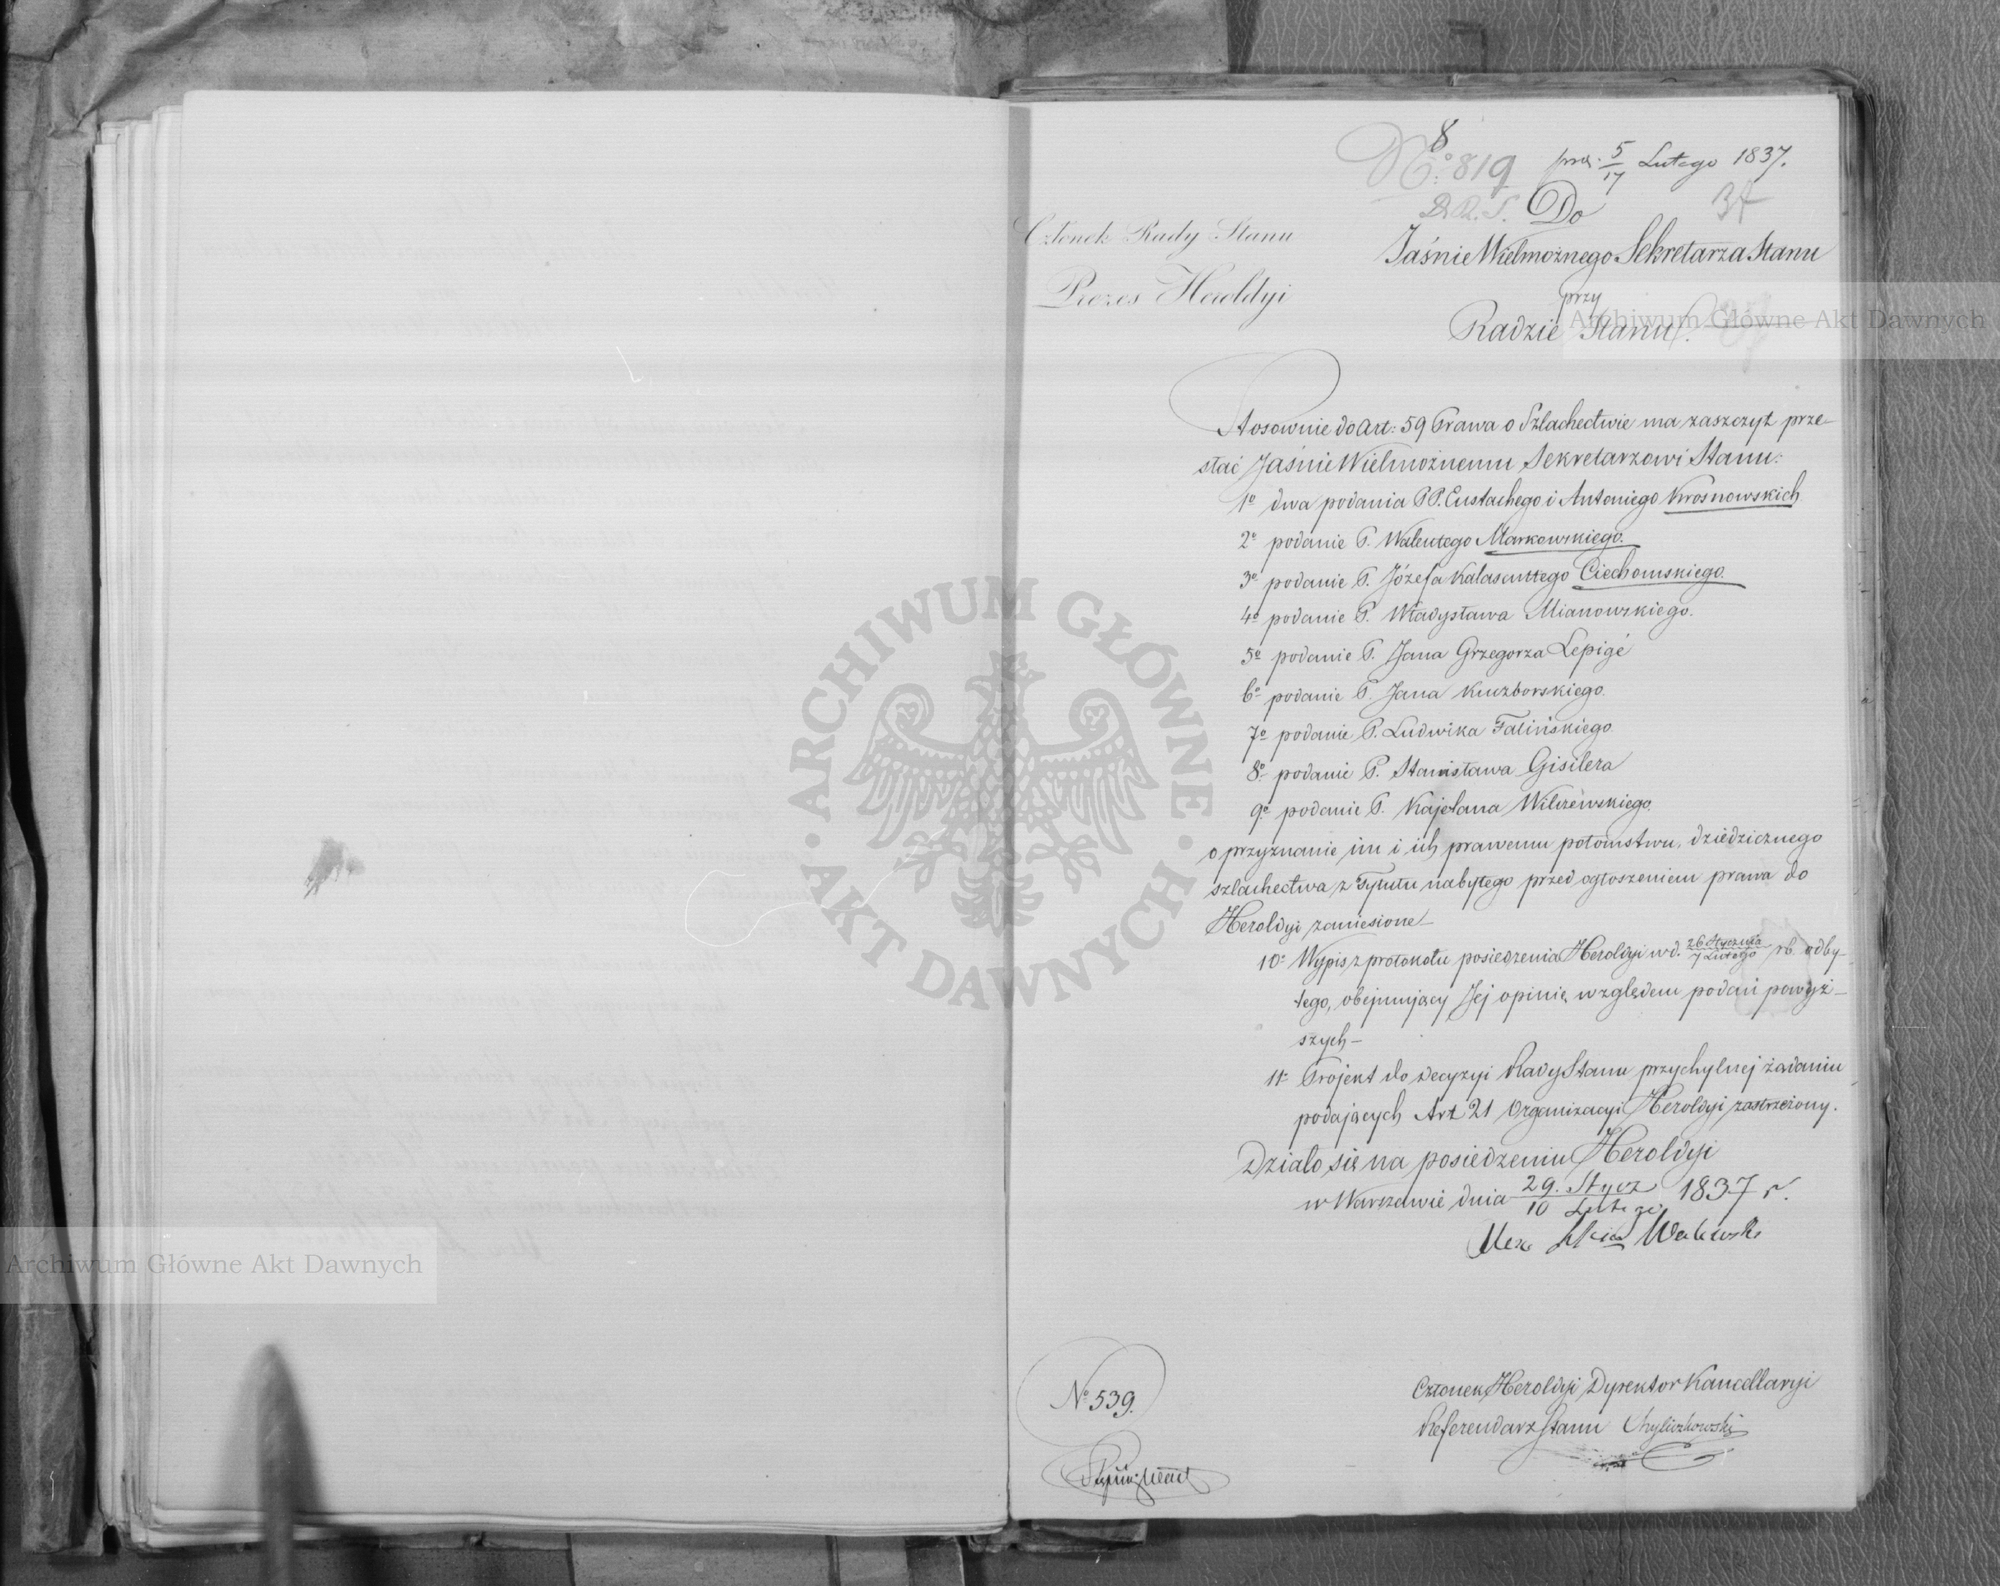 8
Nº 819
pra. 5/17 Lutego 1837.
D.R.S.
Do
37
Członek Rady Stanu
Prezes Heroldyi
Jaśnie Wielmożnego Sekretarza Stanu
przy
Radzie Stanu.
Stosownie do Art: 59 Prawa o Szlachectwie ma zaszczyt prze-
słać Jaśnie Wielmożnemu Sekretarzowi Stanu:
1º dwa podania PP. Eustachego i Antoniego Krosnowskich
2º podanie P. Walentego Markowskiego.
3º podanie P. Józefa Kalasantego Ciechomskiego.
4º podanie P. Władysława Mianowskiego.
5º podanie P. Jana Grzegorza Lepigé
6º podanie P. Jana Kuczborskiego.
7º podanie P. Ludwika Falińskiego
8º podanie P. Stanisława Gisilera
9º podanie P. Kajetana Wilczewskiego.
o przyznanie im i ich prawemu potomstwu, dziedzicznego
szlachectwa z Tytułu nabytego przed ogłoszeniem prawa do
Heroldyi zaniesione
10º Wypis z protokołu posiedzenia Heroldyi w d. 26 Stycznia/7 Lutego rb. odby-
tego, obejmujący Jej opinię względem podań powyż-
szych—
11º Projekt do decyzyi Rady Stanu przychylnej żądaniu
podających Art 21 Organizacyi Heroldyi zastrzeżony.
Działo się na posiedzeniu Heroldyi
w Warszawie dnia 29. Stycz/10 Lutego 1837 r.
Walewski
Nº 539.
Członek Heroldyi Dyrektor Kancellaryi
Referendarz Stanu Chyliczkowski
Archiwum Główne Akt Dawnych
Archiwum Główne Akt Dawnych
ARCHIWUM GŁÓWNE · AKT DAWNYCH ·